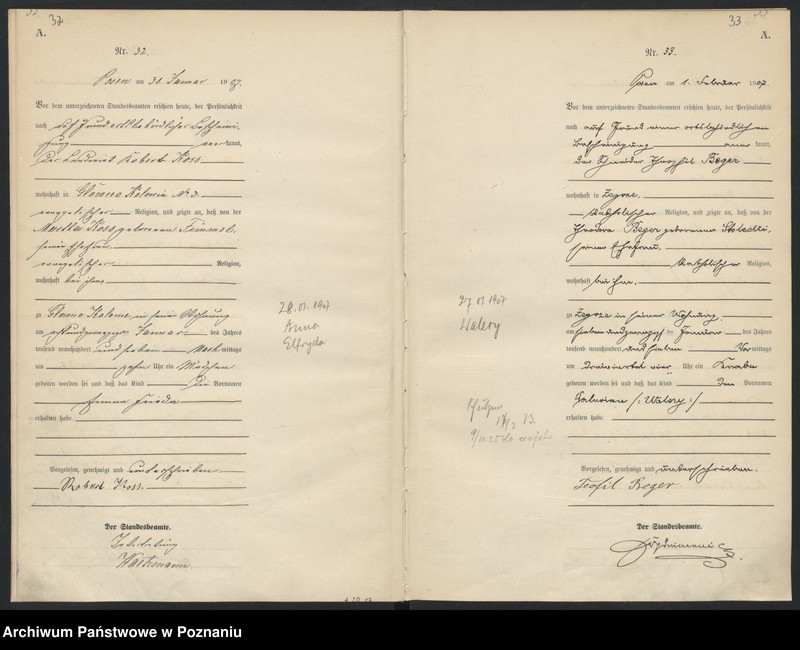 32
A.
Nr. 32.
Posen am 31. Januar 1907.
Vor dem unterzeichneten Standesbeamten erschien heute, der Persönlichkeit
nach auf Grund ortsbehördlicher Bescheini-
gung kannt,
der Landwirt Robert Koss
wohnhaft in Glowno Kolonie No 3.
evangelischer Religion, und zeigte an, daß von der
Martha Koss geborenen
seiner Ehefrau
evangelischer Religion,
wohnhaft bei ihm
zu Glowno Kolonie in seiner Wohnung
am achtundzwanzigsten Januar des Jahres
tausend neunhundert und sieben Nachmittags
um zehn Uhr ein Mädchen
geboren worden sei und daß das Kind die Vornamen
Frieda
erhalten habe.
Vorgelesen, genehmigt und unterschrieben
Robert Koss.
Der Standesbeamte.
In Vertretung
28.01.1907
Anna
Elfryda
33
A.
Nr. 33.
Posen am 1. Februar 1907.
Vor dem unterzeichneten Standesbeamten erschien heute, der Persönlichkeit
nach auf Grund einer ortsbehördlichen
Bescheinigung kannt,
der Schneider Theophil Beger
wohnhaft in Zegrze,
katholischer Religion, und zeigte an, daß von der
Beger geborenen
seiner Ehefrau,
katholischer Religion,
wohnhaft bei ihm,
zu Zegrze in seiner Wohnung,
am siebenundzwanzigsten Januar des Jahres
tausend neunhundert und sieben Vormittags
um dreiviertel vier Uhr ein Knabe
geboren worden sei und daß das Kind den Vornamen
Valerian /: Walery :/
erhalten habe.
Vorgelesen, genehmigt und unterschrieben.
Teofil Beger
Der Standesbeamte.
27.01.1907
Walery
Archiwum Państwowe w Poznaniu